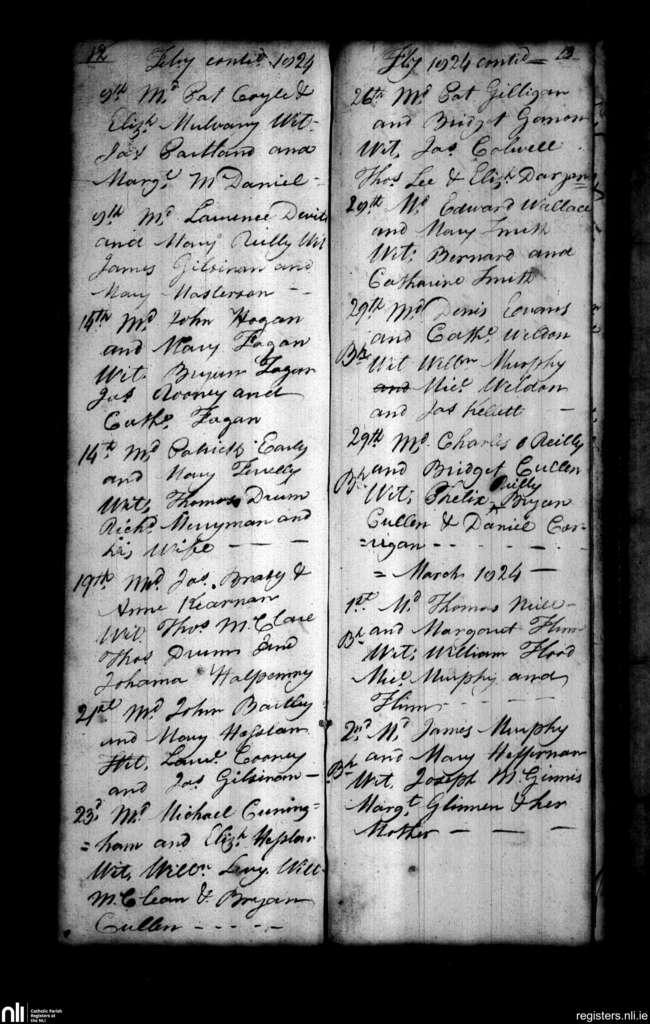 12
Feby contd. 1824
9th Md Pat Coyle &
Elizh Mulvany Wit.
Jas Cartland and
Margt. McDaniel -
9th Md. Laurence
and Mary Reilly Wit
James Gilsinan and
Mary Masterson - -
14th Md John Hogan
and Mary Fagan
Wit. Bryan Fagan
Jas Rooney and
Cathe. Fagan
14th Md Patrick Early
and Mary
Wit, Thomas Drum
Richd Merryman and
his Wife - - -
19th Md Jas. Brady &
Anne Kiernan
Wit. Thos McClare
Thos Drum And
Johanna Halpenny
21st Md John Bailey
and Mary
Wit, Laue. Cooney
and Jas Gilsinan -
23d Md Michael Cuning=
=ham and Elizh
Wit, Willm Levy, Willm
McClean & Bryan
Cullen - - - - -
13
Fby 1824 contd =
26th Md Pat Gilligan
and Bridget
Wit, Jas Colwell
Thos Lee & Elizh
29th Md. Edward Wallace
and Mary Smith
Wit: Bernard and
Catharine Smith
29th Md Denis
and Cathe. Weldon
Wit Willm Murphy
and Micl Weldon
and Jas Kellett -
29th Md. Charles O Reilly
and Bridget Cullen
Wit; Phelix Reilly Bryan
Cullen & Daniel Cor=
=rigan - - - - -
= March 1824 -
1st Md Thomas
and Margaret Flinn
Wit; William Flood
Micl Murphy and
Flinn - - - -
2nd Md James Murphy
and Mary Heffernan
Wit, Joseph McGinnis
Margt. & her
Mother - - -
nli
Catholic Parish
Registers at
the NLI
registers.nli.ie